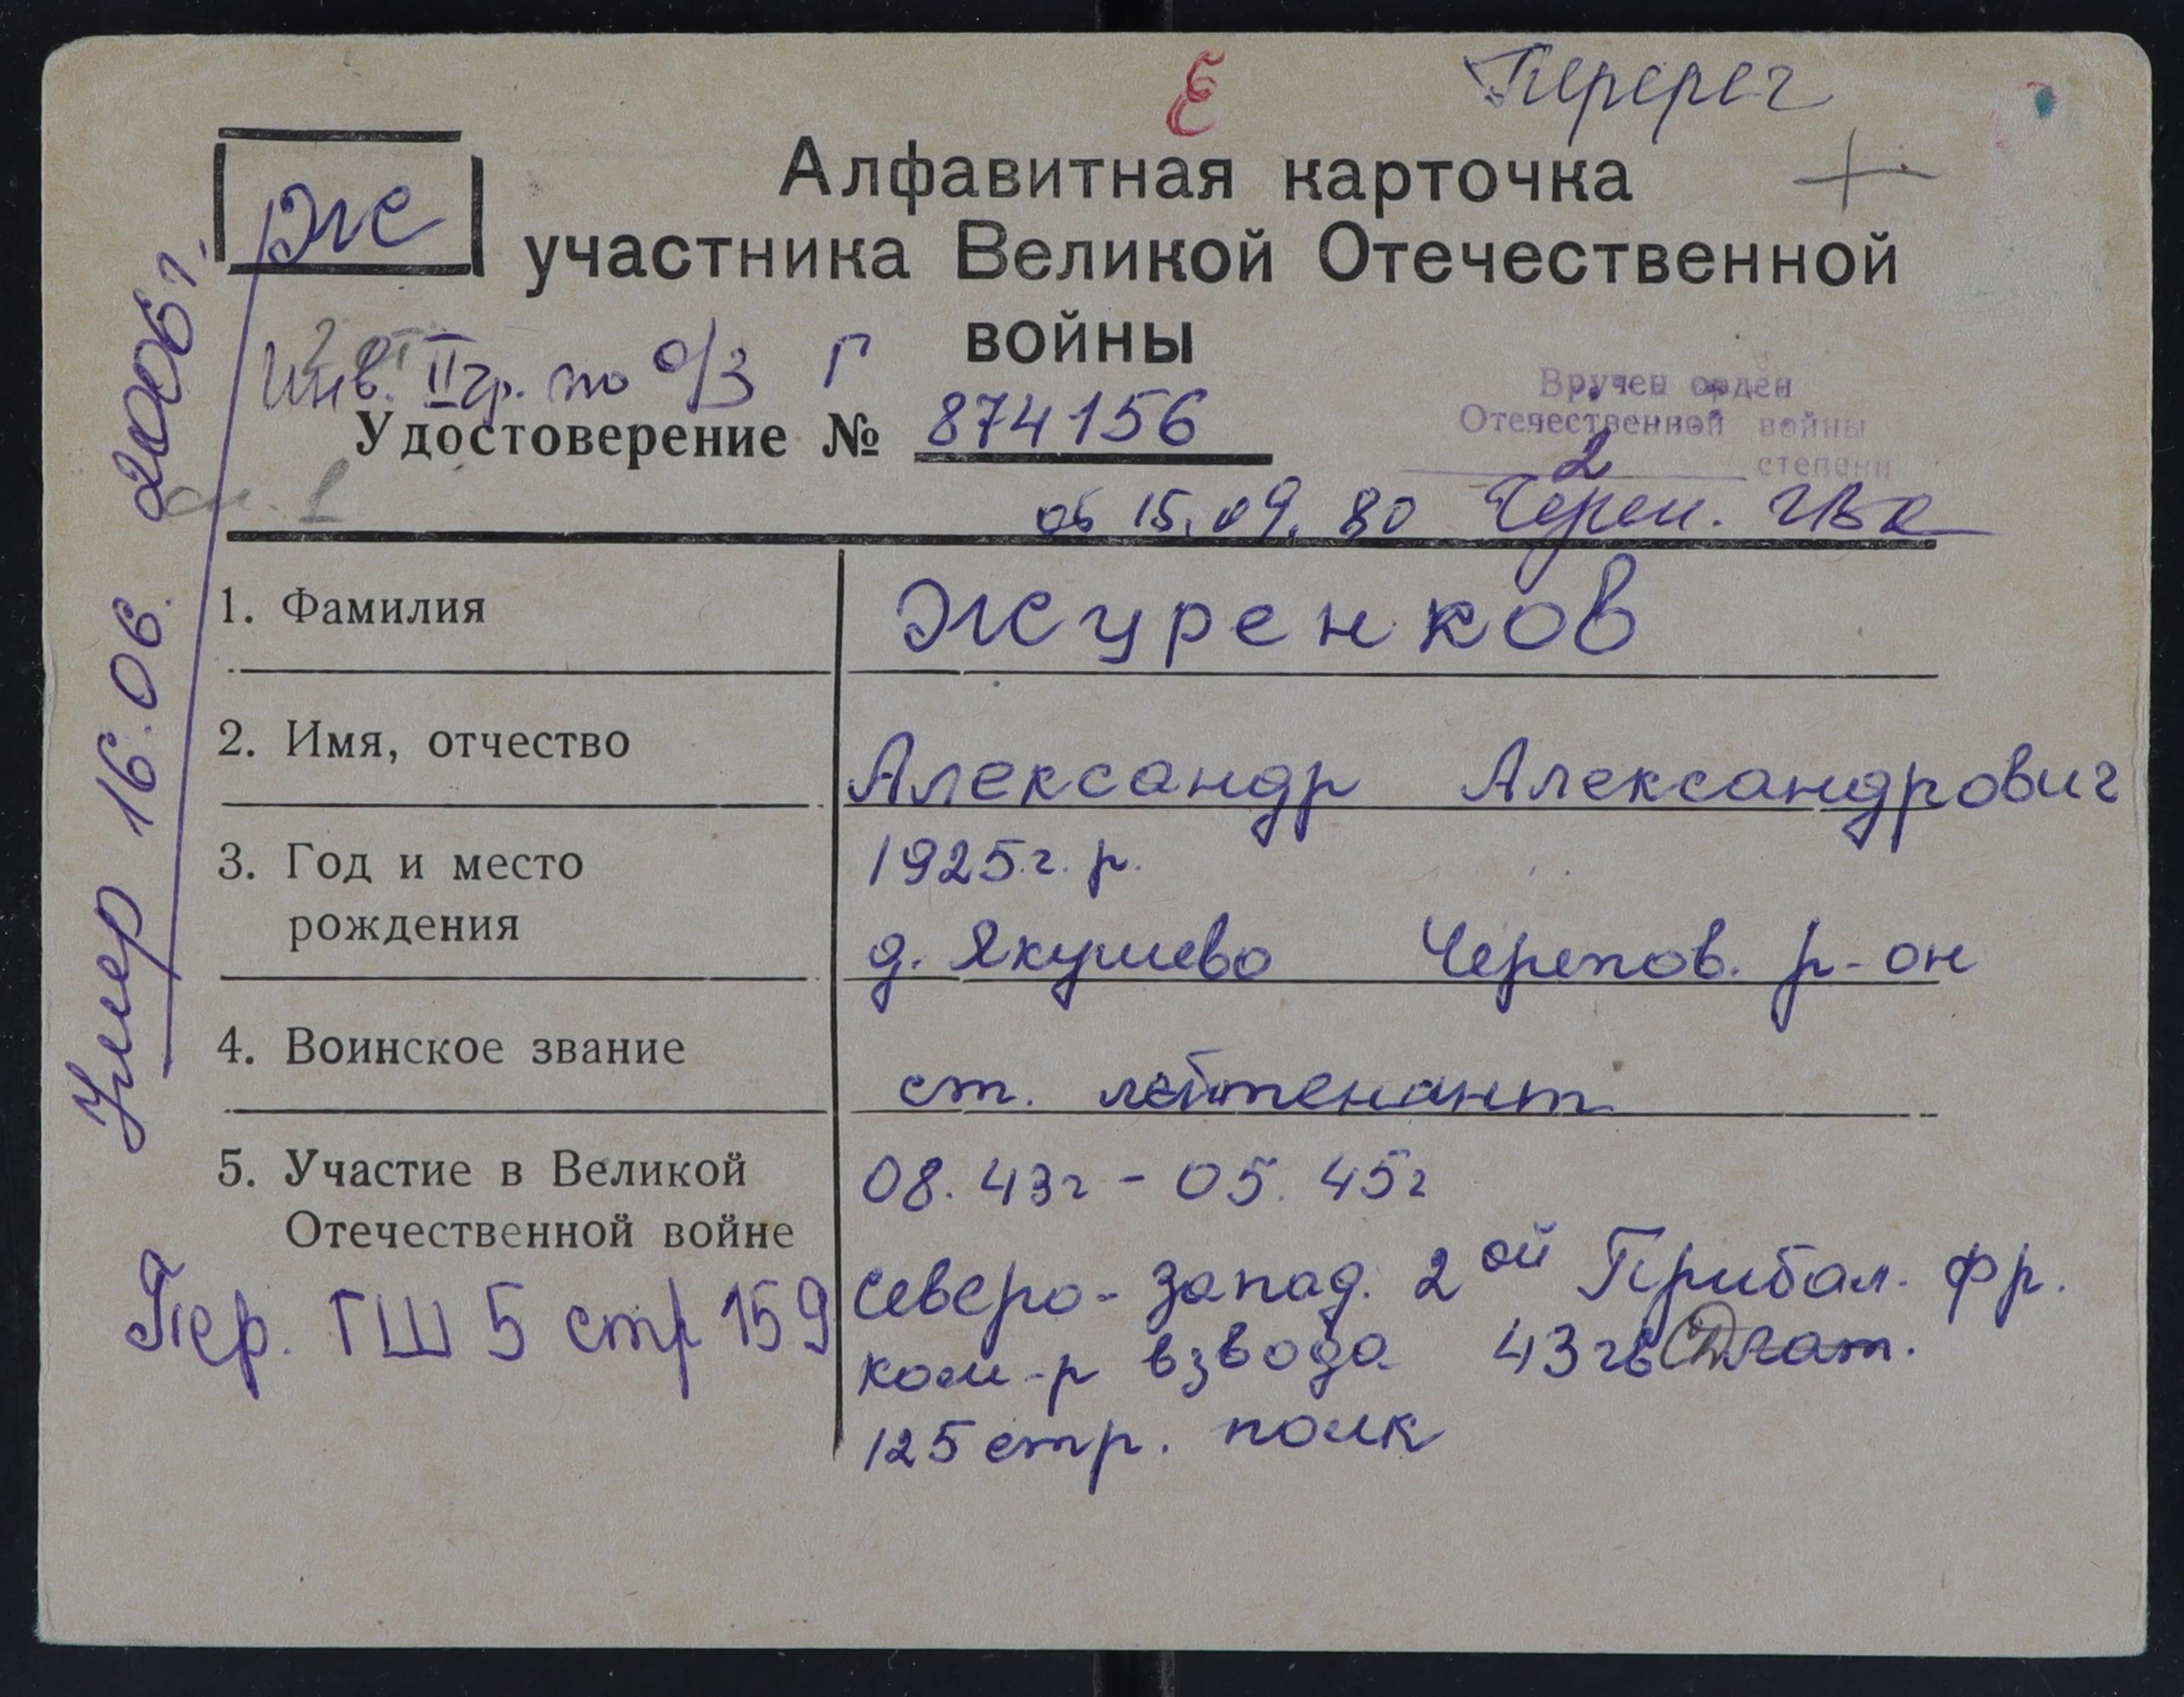 Е Перерег
Ж
Алфавитная карточка
участника Великой Отечественной
войны
Инв. II гр. по о/з Г
Удостоверение № 874156
Вручен орден
Отечественной войны
2 степени
об 15.09.80 Череп. ГВК
1. Фамилия Журенков
2. Имя, отчество Александр Александрович
3. Год и место 1925 г. р.
рождения д. Якушево Черепов. р-он
4. Воинское звание ст. лейтенант
5. Участие в Великой 08. 43г - 05. 45г
Отечественной войне Северо-запад. 2ой Прибал. фр.
ком-р взвода 43 гв СД лат.
125 стр. полк
Пер. ГШ 5 стр 159
Умер 16.06. 2006 г.